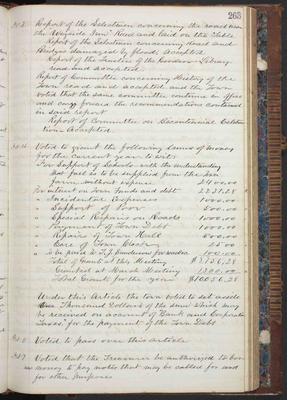 263
Report of the Selectmen concerning the road near
the Wayside Inn. Read and laid on the Table
Report of the Selectmen concerning Road and
Bridges damaged by flood, accepted.
Report of the Trustees of the Goodnow Library
read and accepted
Report of Committee concerning History of the
Town read and accepted and the Town
voted that the same committee continue in office
and carry forward the recommendations contained
in said report
Report of Committee on Bicentennial Celebra-
tion Accepted
Voted to grant the following sums of money
for the current year to wit:
For Support of Schools with the understanding
that fuel is to be supplied from the
farm without expense 2400.00
Interest on Town funds and debt
" Incidental Expenses 1000.00
" Support of Poor 500.00
" Special Repairs on Roads 1000.00
" Payment of Town Debt 1000.00
" Repairs of Town Hall 500.00
" Care of Town Clock 25.00
" To be paid to T. J. 100.00
Total of Grants at this Meeting
Granted at March Meeting 1300.00
Total Grants for the year
Under this Article the town voted to set aside
Thousand Dollars of the sum which may
be received on account of Bank and Corporation
Taxes, for the payment of the Town Debt
Voted to pass over this article
Voted that the Treasurer be authorized to borr-
ow money to pay notes that may be called for and
for other purposes